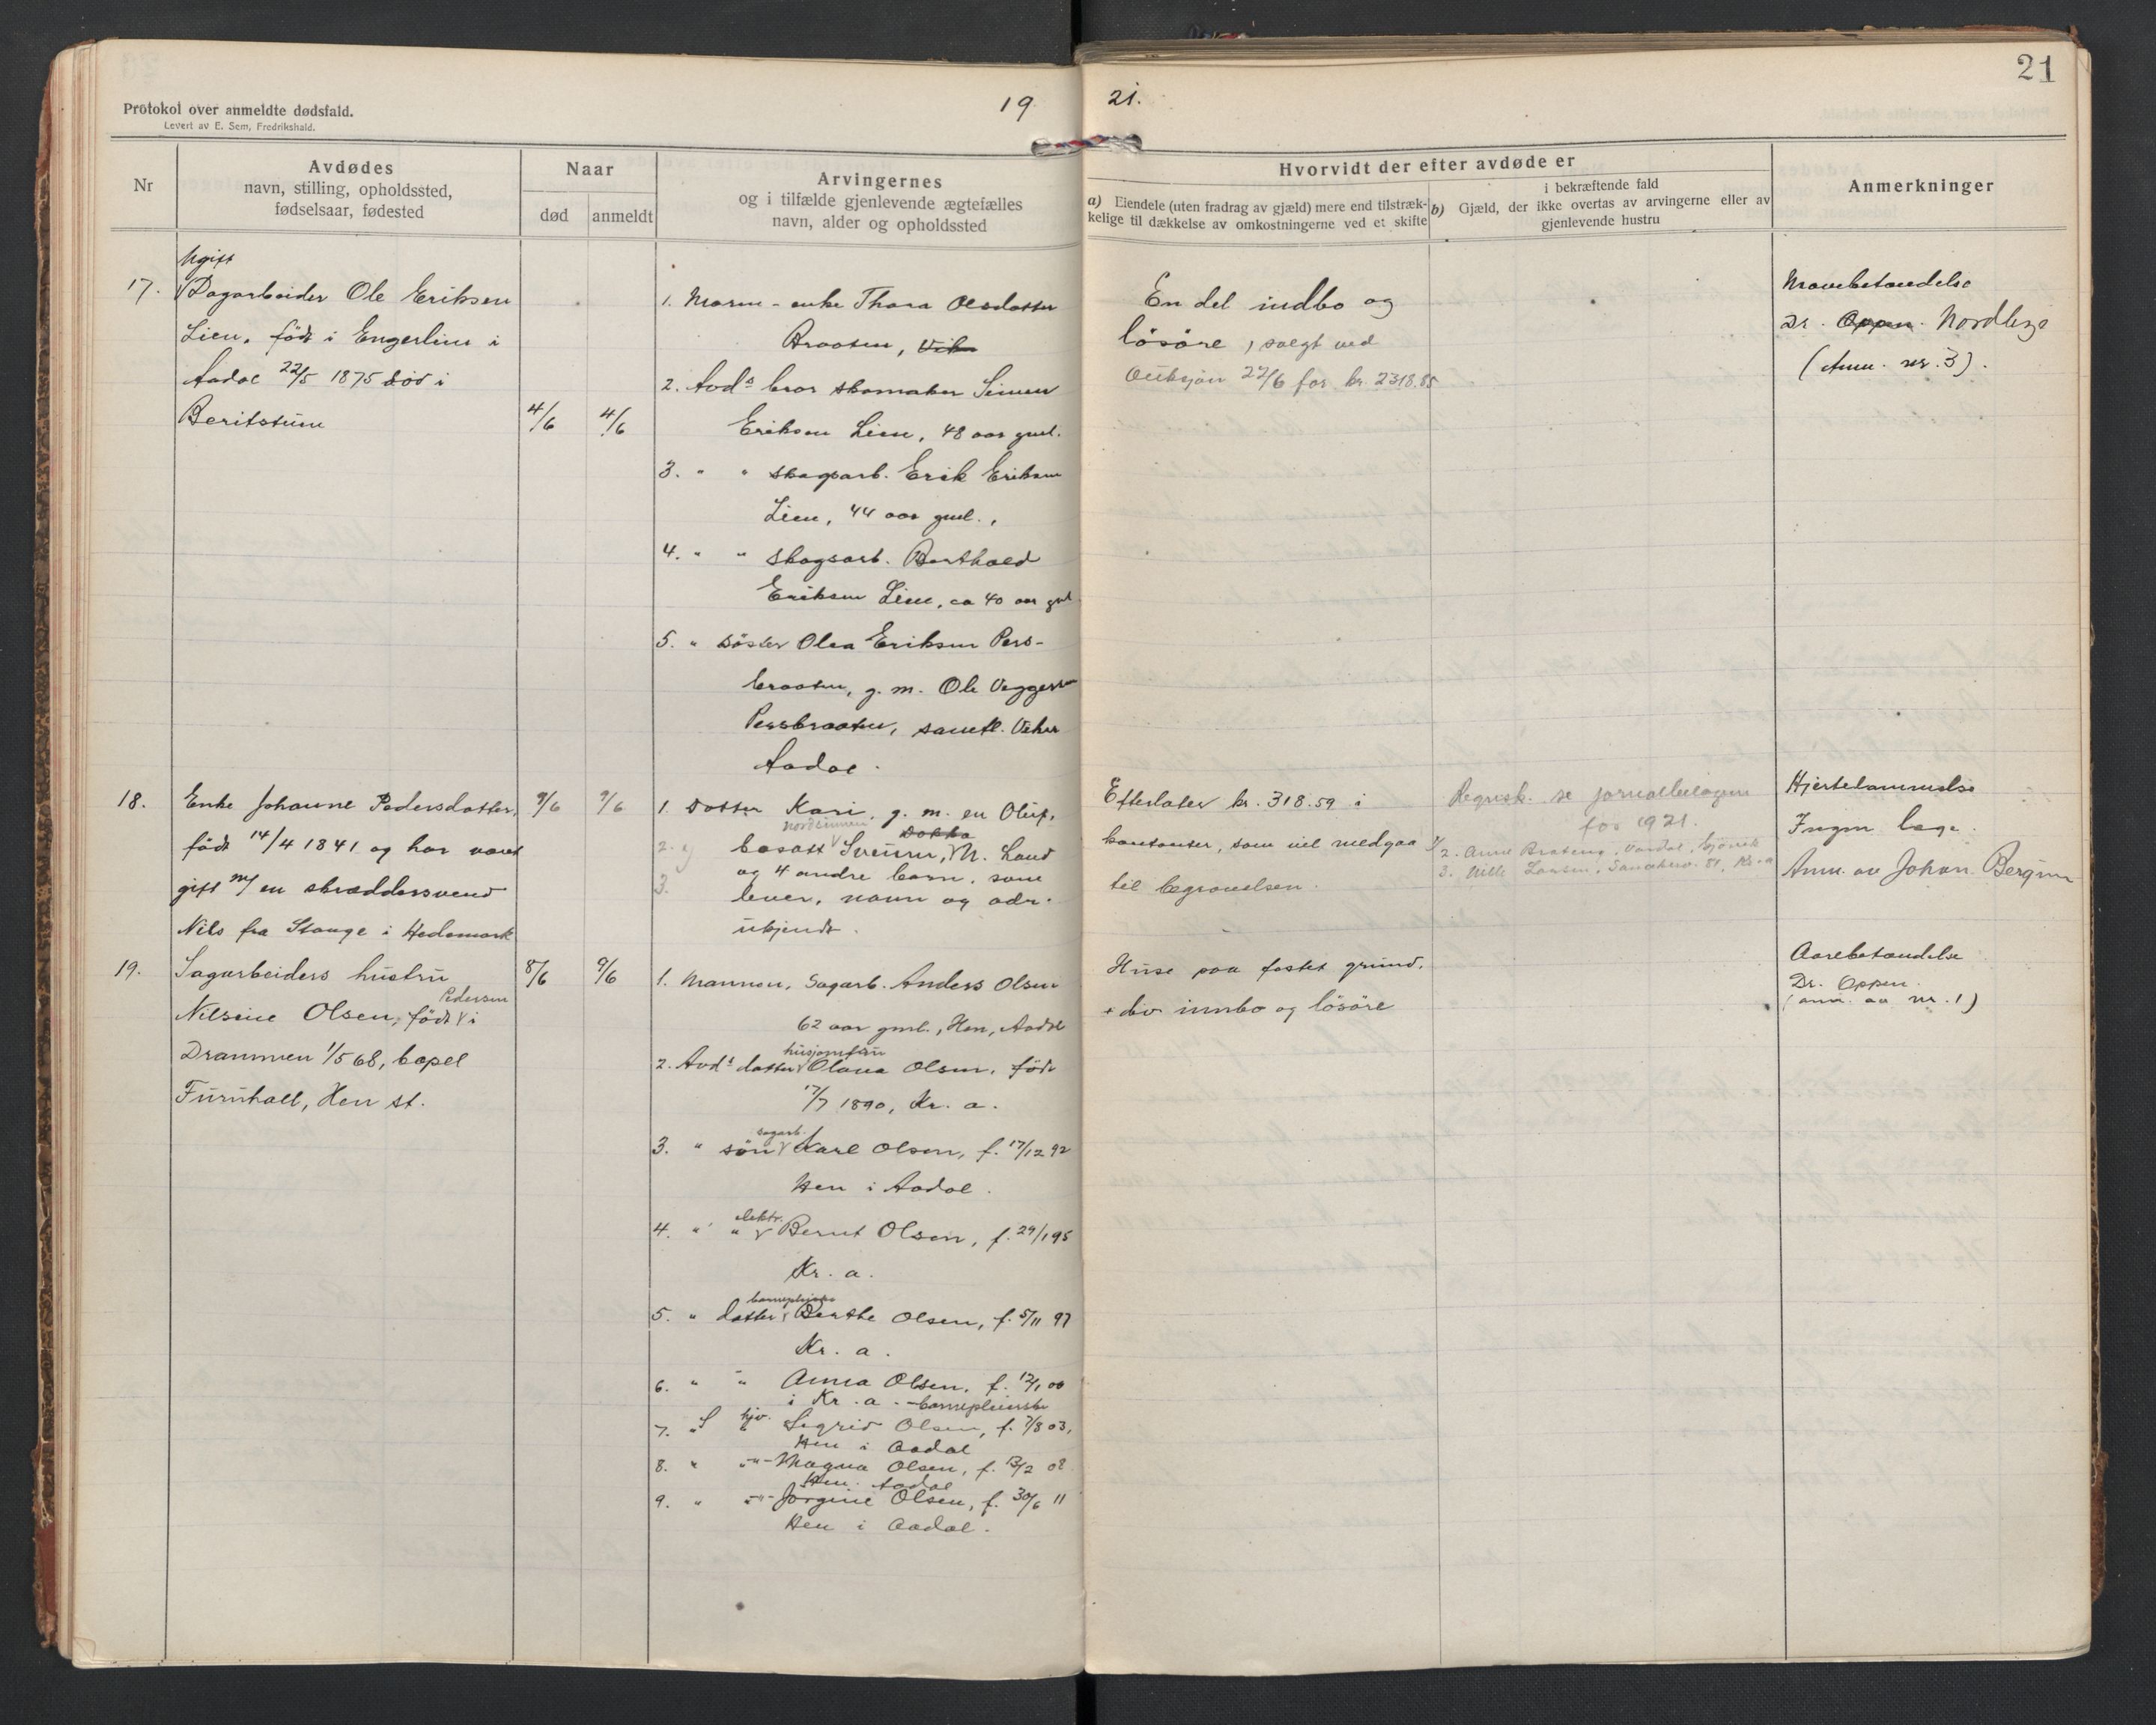 Protokol over anmeldte dødsfald.
Levert av E. Sem, Fredrikshald.
19
21.
21
Nr
Avdødes
navn, stilling, opholdssted,
fødselsaar, fødested
Naar
død
anmeldt
Arvingernes
og i tilfælde gjenlevende ægtefælles
navn, alder og opholdssted
Hvorvidt der efter avdøde er
a) Eiendele (uten fradrag av gjæld) mere end tilstræk-
kelige til dækkelse av omkostningerne ved et skifte
i bekræftende fald
b) Gjæld, der ikke overtas av arvingerne eller av
gjenlevende hustru
Anmerkninger
Ugift
17. Dagarbeider Ole Eriksen
Lien, født i Engerlien i
Aadal 22/5 1875 död i
Beritstuen
4/6
4/6
1. Moren - enke Thora Olsdatter
Braaten, Viker
2. Avds bror skomaker Simen
Eriksen Lien, 48 aar gml.
3. " " skogsarb. Erik Eriksen
Lien, 44 aar gml.,
4. " " skogsarb. Berthold
Eriksen Lien, ca 40 aar gml
5. " söster Olea Eriksen Pers-
braaten, g. m. Ole Veggersen
Persbraaten, samtl. Viker
Aadal.
En del indbo og
lösöre, solgt ved
auksjon 22/6 for kr. 2318.85
Mavebetændelse
Dr. Oppen. Nordby
(Anm. nr. 3).
18. Enke Johanne Pedersdatter,
född 14/4 1841 og har været
gift m/ en skræddersvend
Nils fra Stange i Hedemark
9/6
9/6
1. Datter Kari, g. m. en Oluf,
Nordsinnen Dokka
2. bosatt Svenrn, N. Land
og 4 andre barn, som
3. lever, navn og adr.
ukjendt.
Efterlater kr. 318.59 i
kontanter, som vil medgaa
til begravelsen.
Regnsk. se jornalbilagene
for 1921.
2. Anne Brateng, Vardal, Gjövik
3. Nille Larsen, 81, Kr.a
Hjertelammelse
Ingen læge.
Anm. av Johan Bergum
19. Sagarbeiders hustru
Pedersen
Nilsine Olsen, född i
Drammen 1/5 68, bopel
Furuhall, Hen st.
8/6
9/6
1. Mannen, Sagarb. Anders Olsen
62 aar gml., Hen, Aadal
husjomfru
2. Avds datter Olava Olsen, född
17/7 1890, Kr. a.
sagarb.
3. " sön Karl Olsen, f. 17/12 92
Hen i Aadal.
elektr.
4. " " Bernt Olsen, f. 29/1 95
Kr. a.
barnepleierske
5. " datter Berthe Olsen, f. 5/11 97
Kr. a.
6. " " Anna Olsen, f. 12/1 00
i Kr. a. - barnepleierske
7. " hjv. Sigrid Olsen, f. 7/8 03,
Hen i Aadal
8. " -"- Magna Olsen, f. 13/2 08
Hen. Aadal
9. " -"- Jörgine Olsen, f. 30/6 11
Hen i Aadal.
Huse paa festet grund,
+ div. innbo og lösöre
Aarebetændelse
Dr. Oppen.
(anm. av nr. 1)